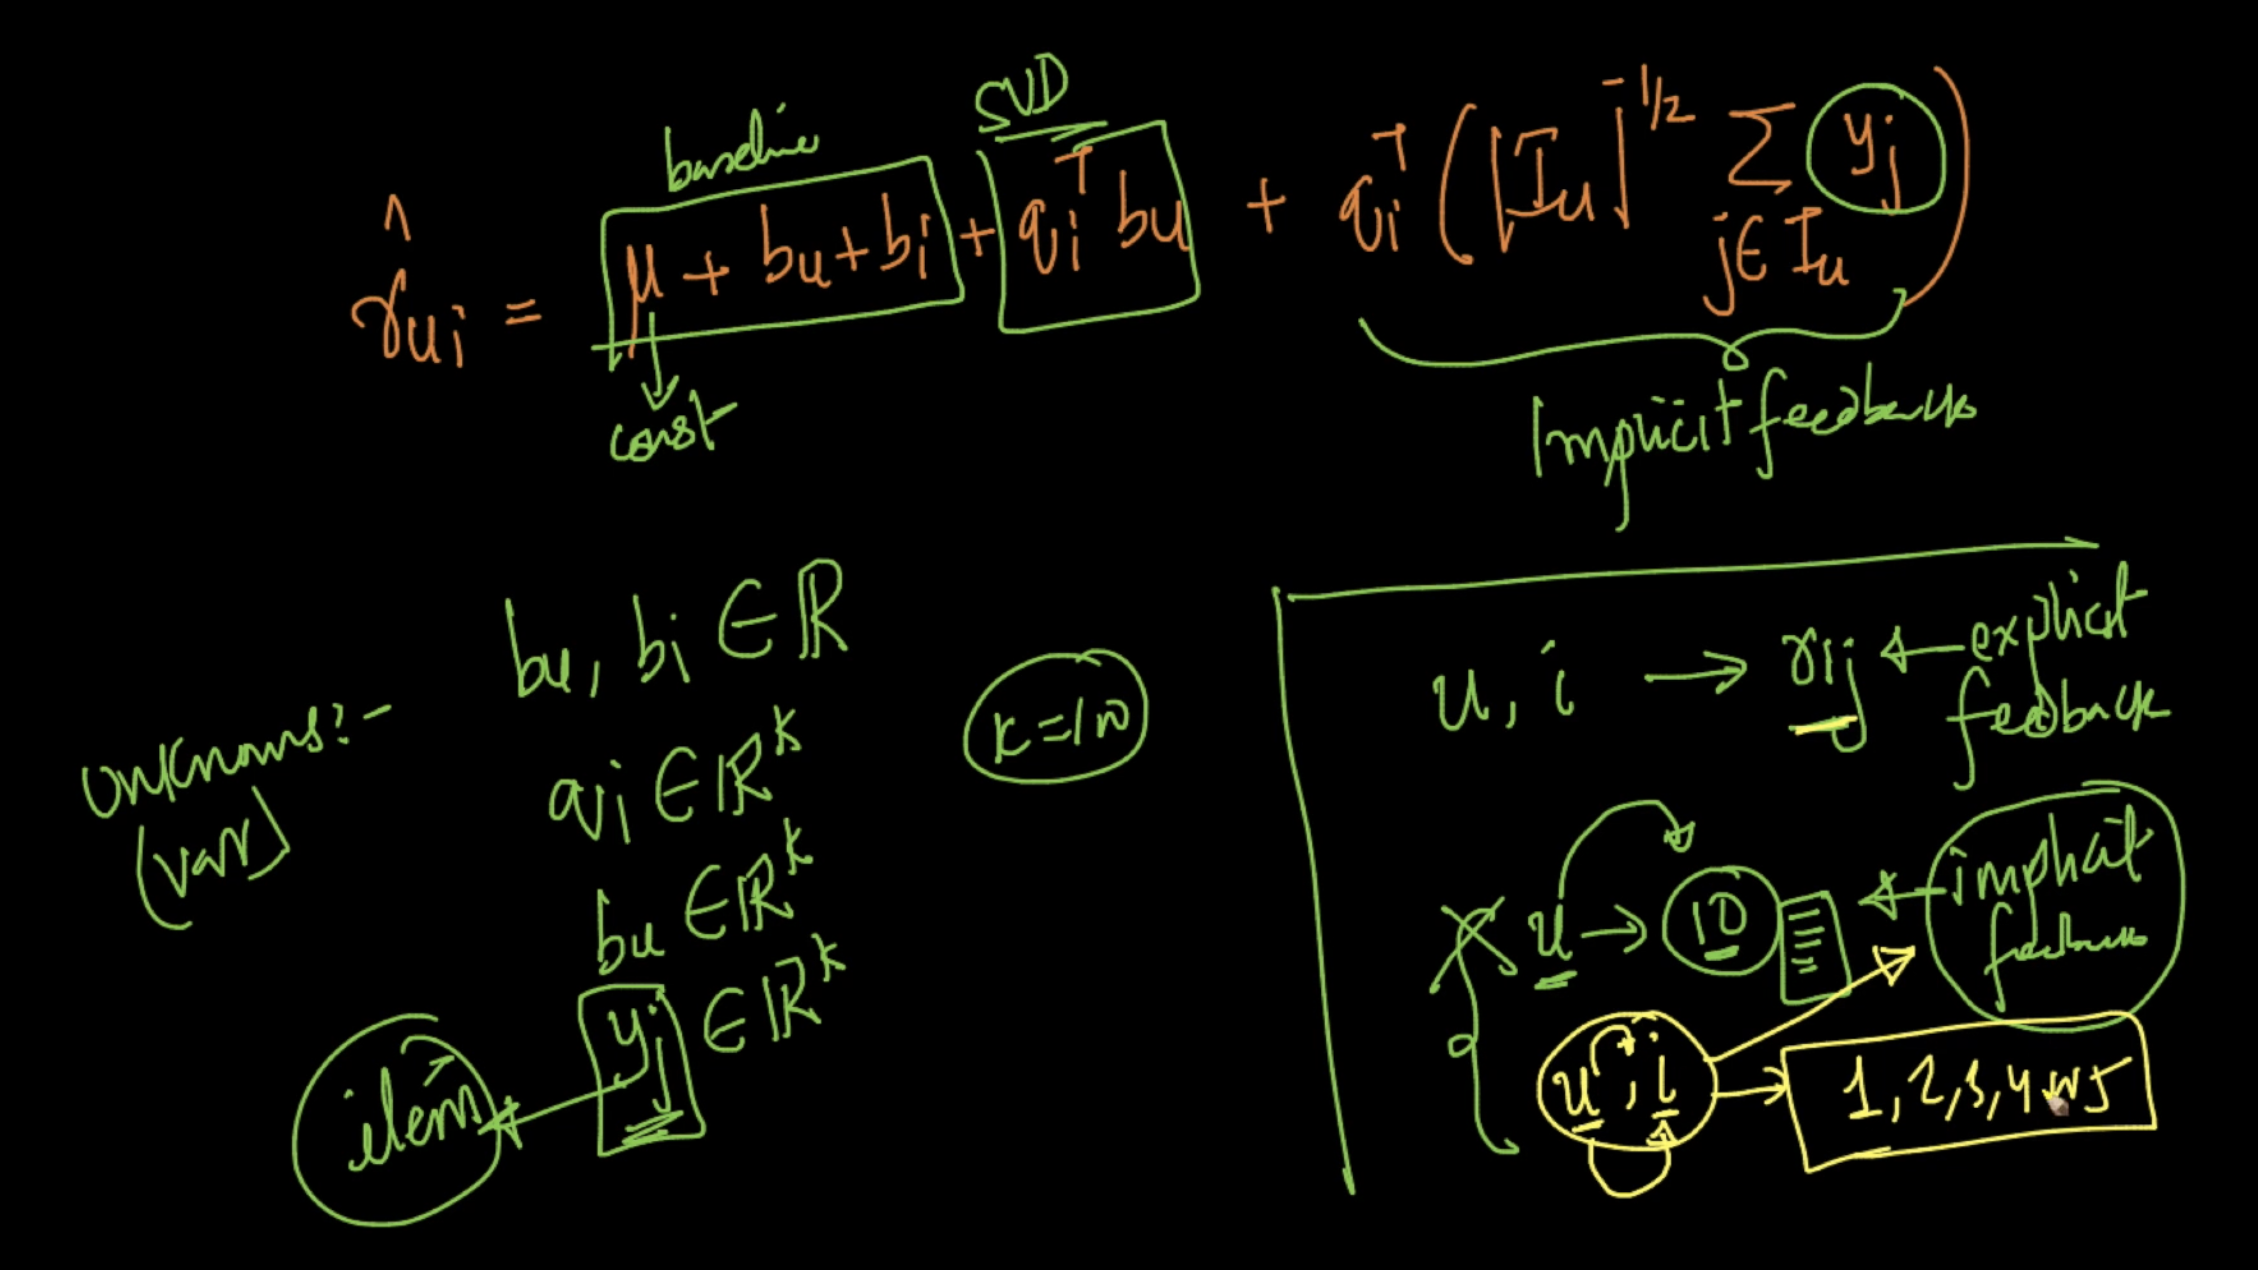 SVD
baseline
r̂ui = μ + bu + bi + qi^T bu + qi^T ( |Iu|^-1/2 Σ j∈Iu yj )
const
Implicit feedback
bu, bi ∈ ℝ
unknowns:-
(var)
qi ∈ ℝ^k
bu ∈ ℝ^k
yj ∈ ℝ^k
item
k=10
u, i → rij ← explicit
feedback
u → 10 ← implicit
feedback
u, i → 1, 2, 3, 4 or 5